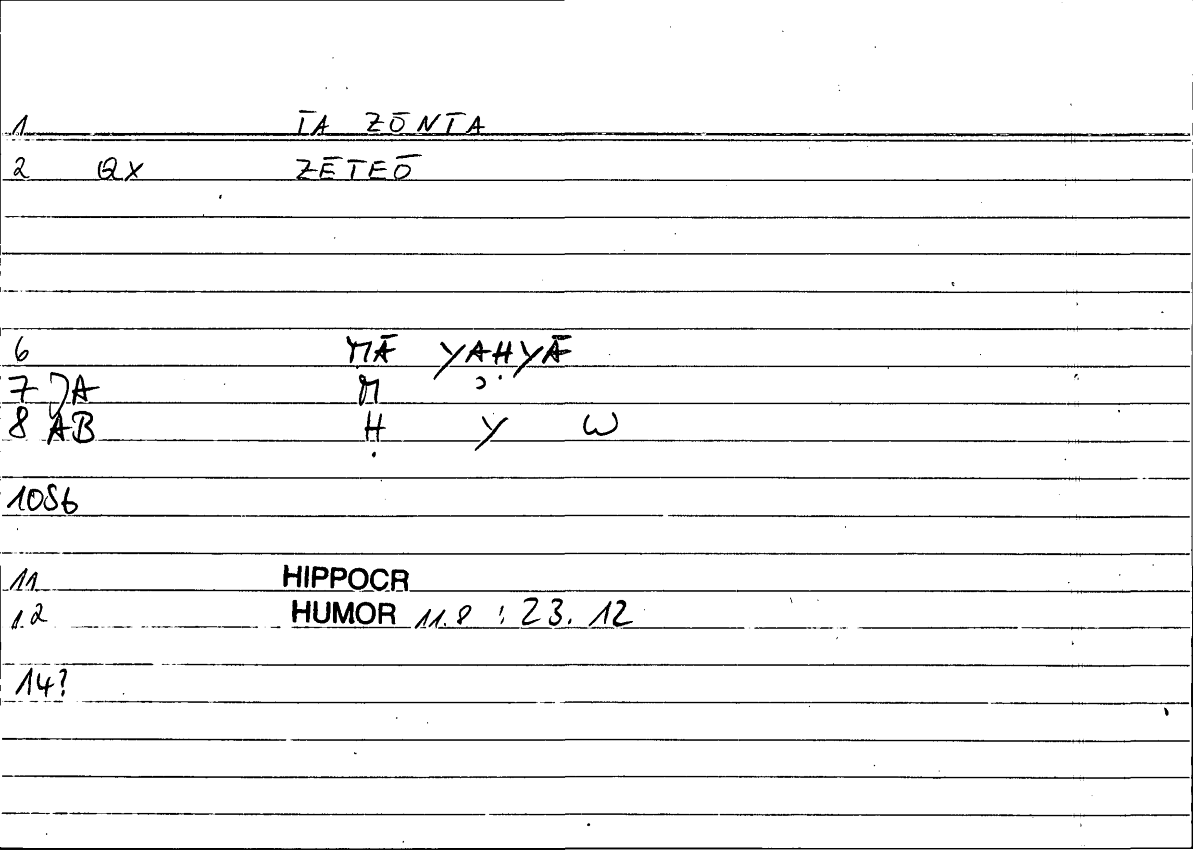 1 TA ZŌNTA
2 QX ZĒTEŌ
6 MĀ YAḤYĀ
7 JA M
8 AB Ḥ Y W
10 Sb
11 HIPPOCR
12 HUMOR 11.8 : 23.12
14?